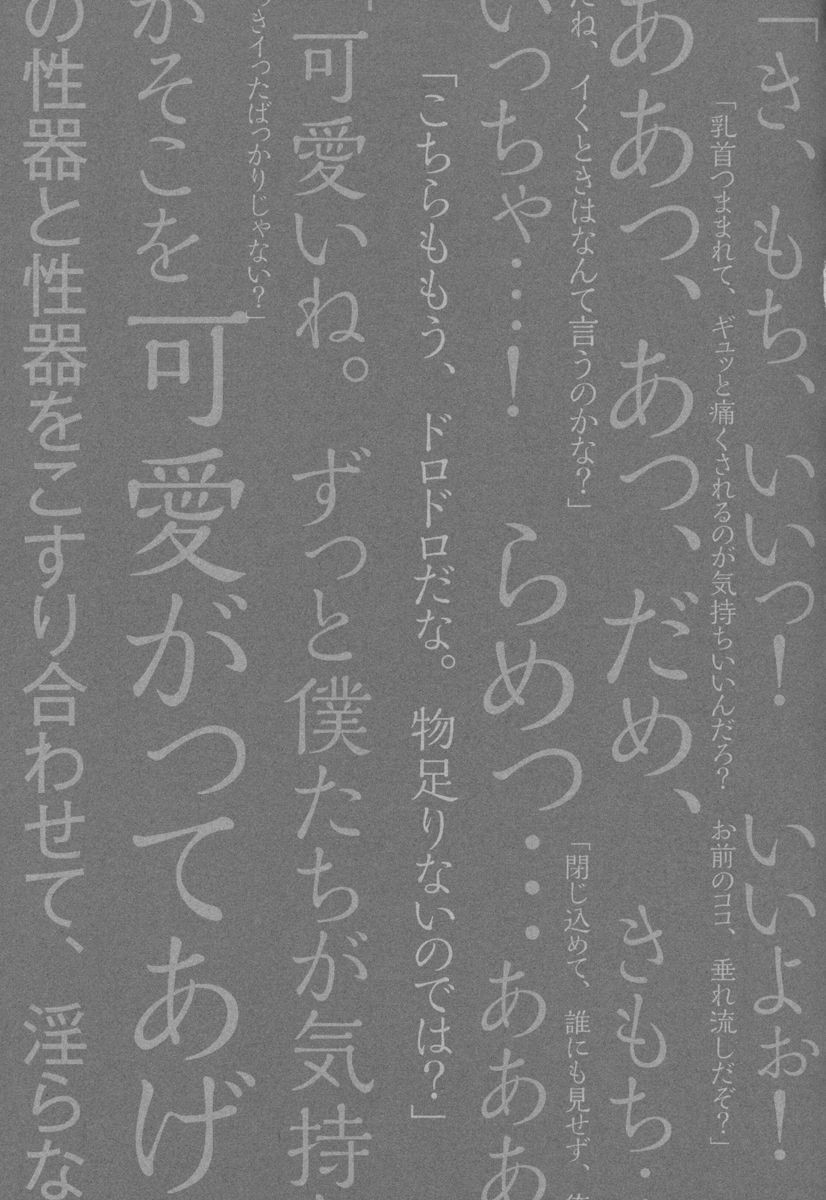 「き、もち、いいっ！　いいよぉ！
「乳首つままれて、ギュッと痛くされるのが気持ちいいんだろ？　お前のココ、垂れ流しだぞ？」
ああっ、あっ、だめ、　きもち
ね、イくときはなんて言うのかな？」
「閉じ込めて、誰にも見せず、
いっちゃ…！　らめっ…あああ
「こちらももう、ドロドロだな。物足りないのでは？」
「可愛いね。ずっと僕たちが気持
っきイったばっかりじゃない？」
がそこを可愛がってあげ
の性器と性器をこすり合わせて、淫らな